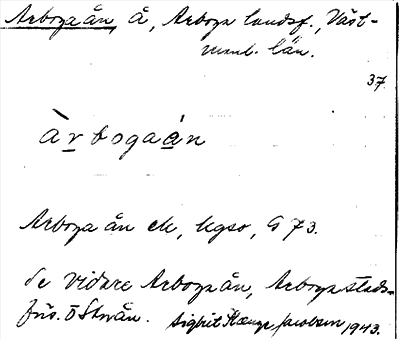 Arbogaån, å, Arboga landsf., Väst-
manl. län.
37
àrbogaán
Arboga ån ek, kgso, G 73.
Se vidare Arbogaån, Arboga stads-
fös. ö Strån. Sigbrit Plænge Jacobson 1943.